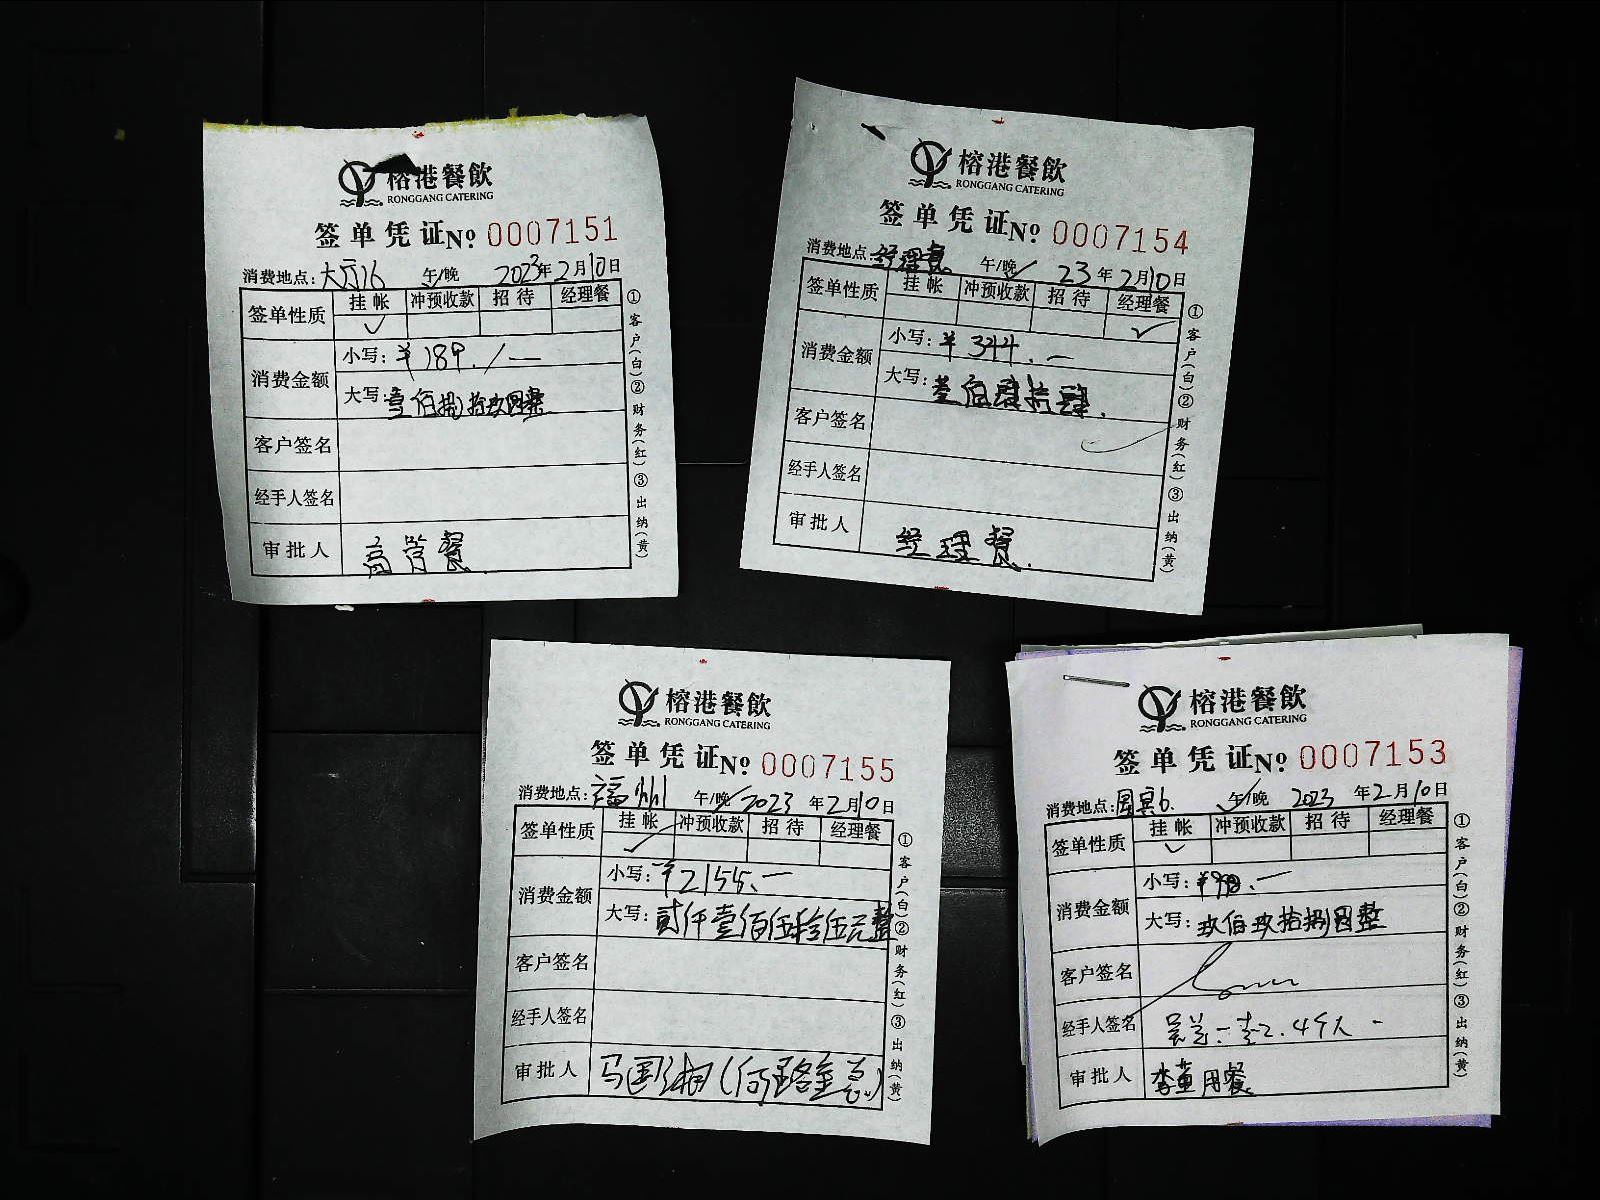 榕港餐飲
RONGGANG CATERING
签单凭证 № 0007151
消费地点: 大厅16 午/晚 2023年2月10日
签单性质 挂帐 冲预收款 招待 经理餐
✓
消费金额 小写: ¥189./—
大写: 壹佰捌拾玖圆整
客户签名
经手人签名
审批人 高管餐
①客户(白)②财务(红)③出纳(黄)
榕港餐飲
RONGGANG CATERING
签单凭证 № 0007154
消费地点: 经理餐 午/晚 ✓ 23年2月10日
签单性质 挂帐 冲预收款 招待 经理餐
✓
消费金额 小写: ¥344.—
大写: 佰肆拾肆.
客户签名
经手人签名
审批人 经理餐.
①客户(白)②财务(红)③出纳(黄)
榕港餐飲
RONGGANG CATERING
签单凭证 № 0007155
消费地点: 福州 午/晚 ✓ 2023年2月10日
签单性质 挂帐 冲预收款 招待 经理餐
✓
消费金额 小写: ¥2155.—
大写: 贰仟壹佰伍拾伍元整
客户签名
经手人签名
审批人 马国湘(何璐金总)
①客户(白)②财务(红)③出纳(黄)
榕港餐飲
RONGGANG CATERING
签单凭证 № 0007153
消费地点: 6. ✓ 午/晚 2023年2月10日
签单性质 挂帐 冲预收款 招待 经理餐
✓
消费金额 小写: ¥998.—
大写: 玖佰玖拾捌圆整
客户签名
经手人签名 4个人
审批人 李董用餐
①客户(白)②财务(红)③出纳(黄)